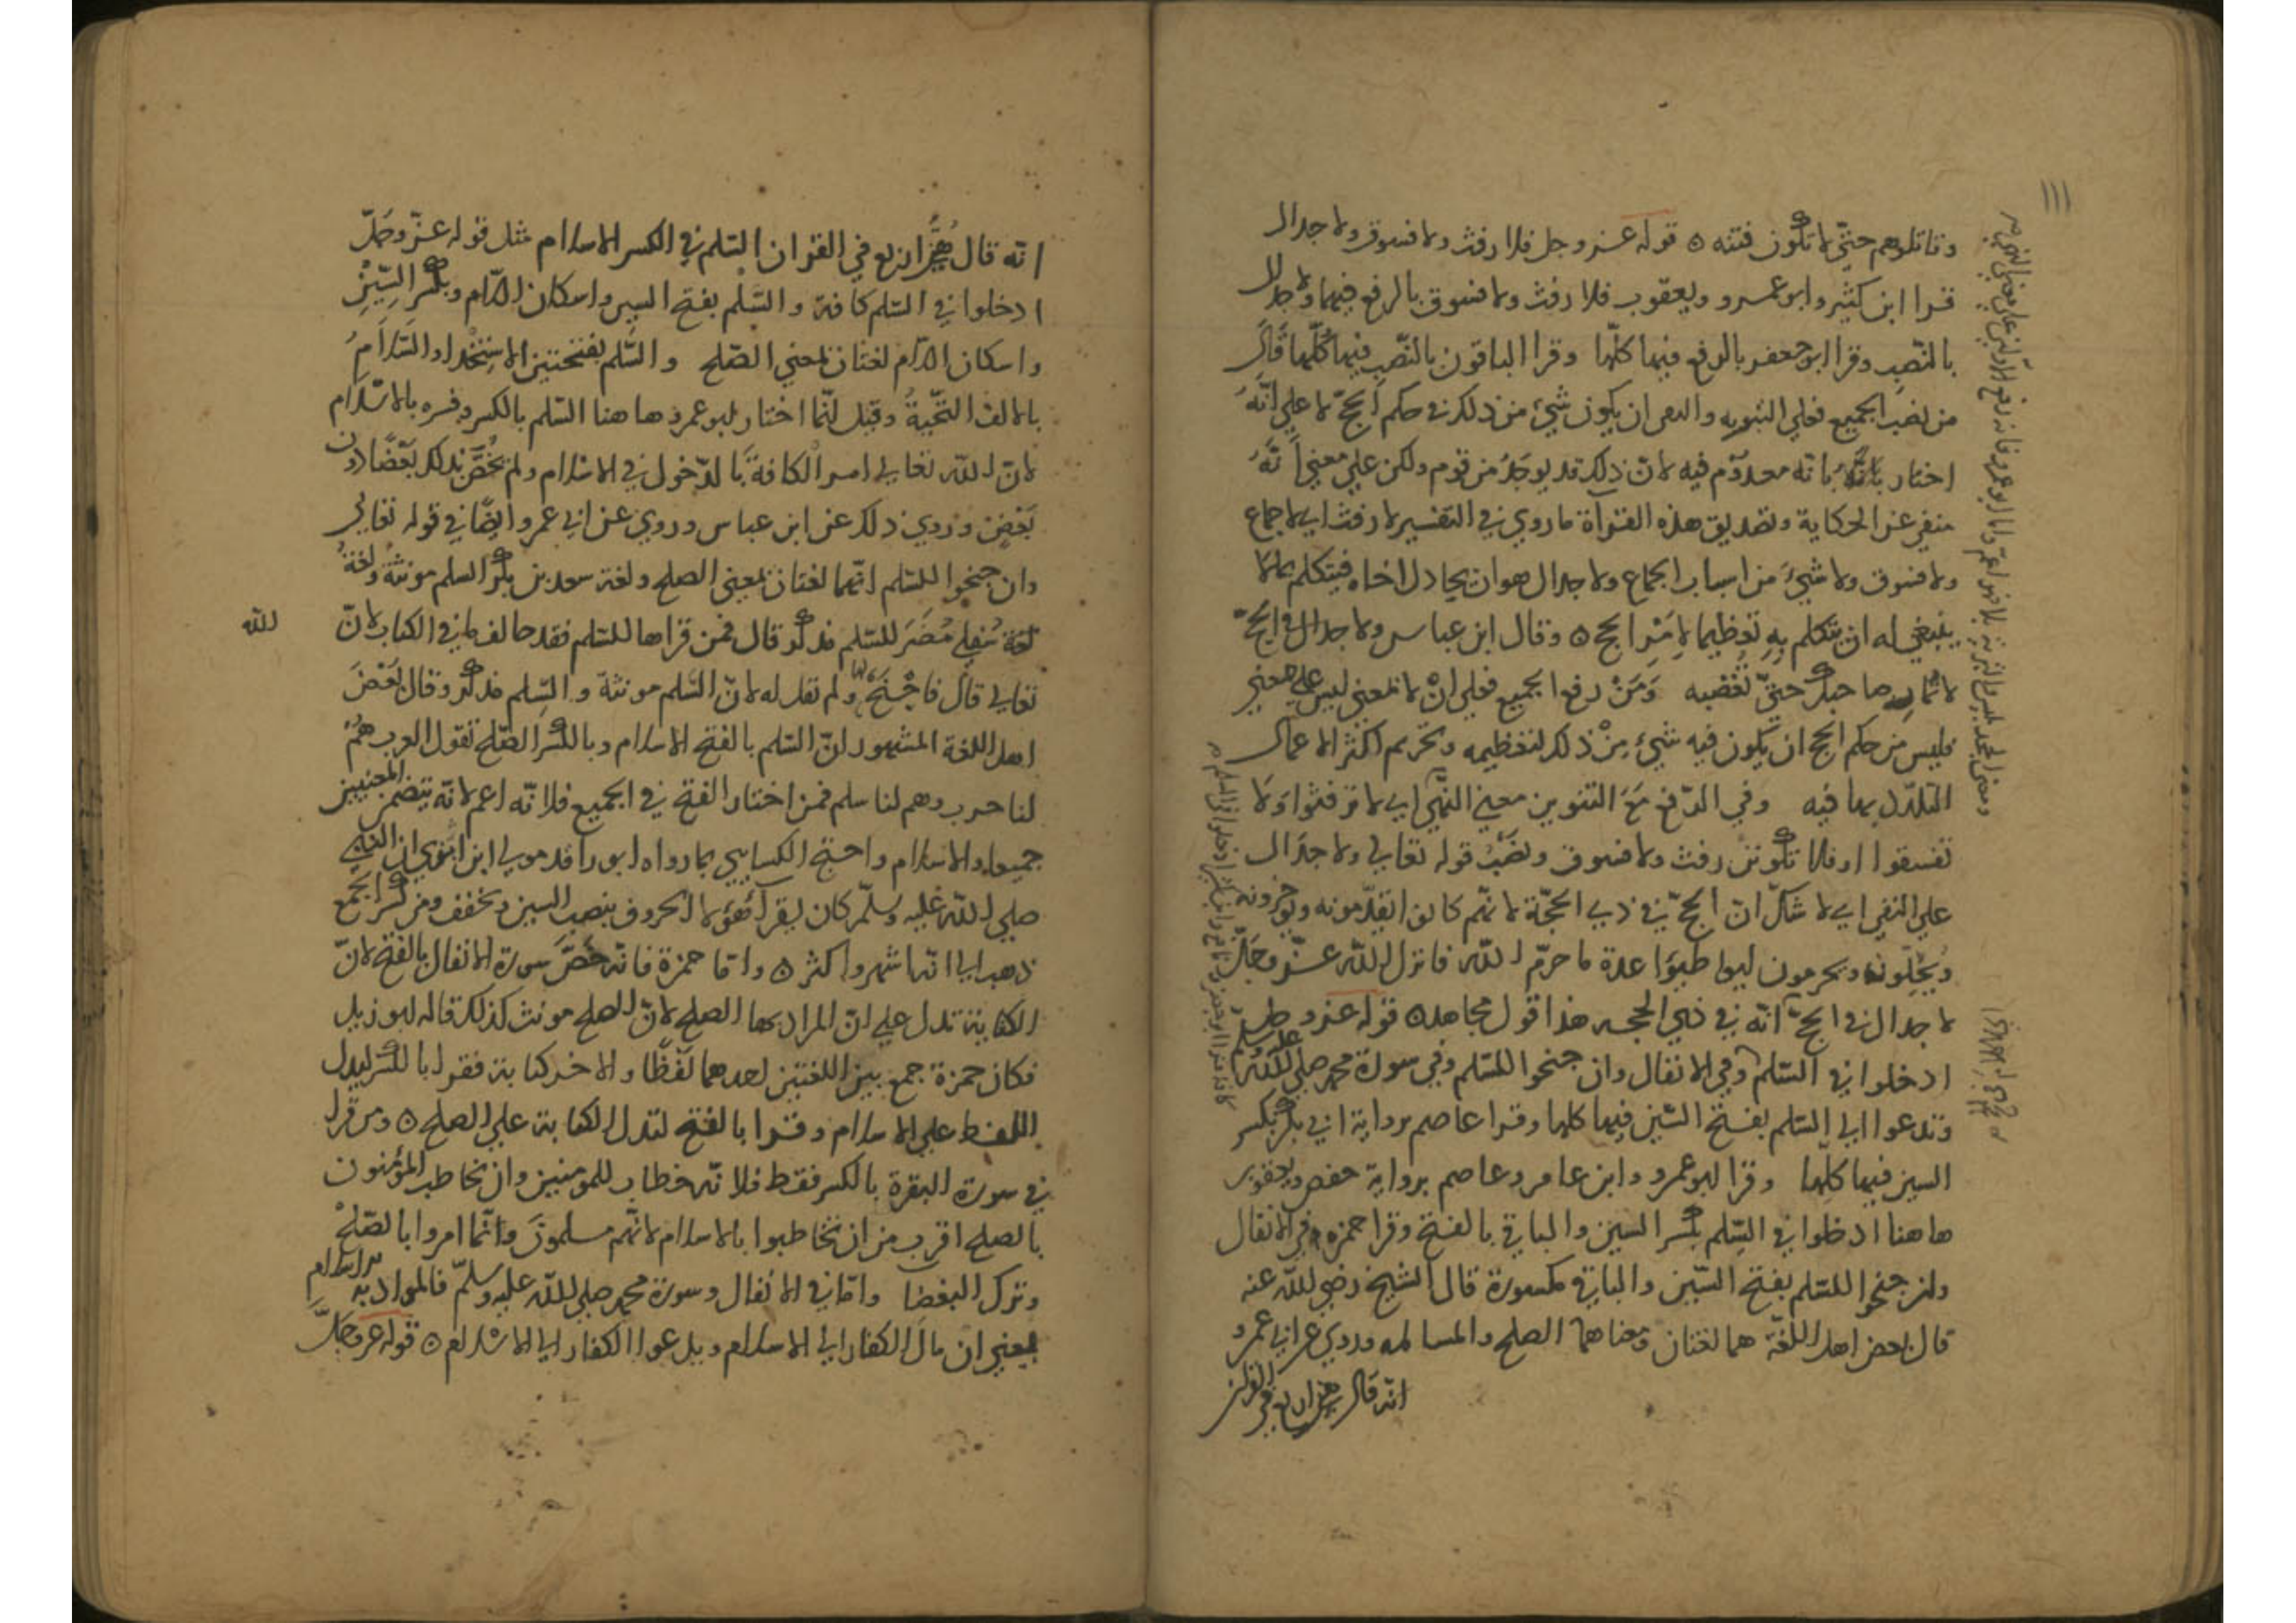 ١١١
وقاتلوهم حتّي لا تكون فتنه ٥ قوله عز وجل فلا رفث ولا فسوق ولا جدال
قرا ابن كثير وابو عمرو ويعقوب فلا رفث ولا فسوق بالرفع فيهما ولا جدال
بالنّصب وقرا ابو جعفر بالرفع فيها كلّها وقرا الباقون بالنّصب فيها كُلّها قال
من نصب الجميع فعلي التبريه والمعني ان يكون شيئ من ذلك في حكم الحجّ لا علي انّهُ
اختار بانه معدوم فيه لانّ ذلك قد يوجَدُ من قوم ولكن علي معني اَنّهُ
منفي عن الحكاية وتصديق هذه القراة ما روي في التفسير لا رفث اي لا جماع
ولا فسوق ولا شيئ من اسباب الجماع ولا جدال هو ان يجادل اخاه فيتكلم بما لا
ينبغي له ان يتكلم به تعظيما لامر الحج ٥ وقال ابن عباس ولا جدال في الحجّ
لا تمار صاحبك حتّي تغضبه وَمَنْ رفع الجميع فعلي انْ لا بمعني ليس علي معني
فليس من حكم الحج ان يكون فيه شيئ مِنْ ذلك لتعظيمه وتحريم اكثر الاعمال
التلذذ بها فيه وفي الرّفع مَعَ التنوين معني النّهي اي لا ترفثوا وَلا
تفسقوا او فلا تكونن رفث ولا فسوق ونَصْبُ قوله تعالي ولا جدَال
علي النفي اي لا شكّ انّ الحجّ في ذي الحجّة لانّهم كانوا يقدّمونه ويوخرونه
ويُحِلّونه ويحرمون ليواطئوا عدة ما حرّم الله فانزل الله عزّ وجَلّ
لا جدال في الحجّ انّه في ذي الحجه هذا قول مجاهد ٥ قوله عز وجل
ادخلوا في السّلم وفي الانفال وان جنحوا للسّلم وفي سورة محمد صلي الله عليه وسلم
وتدعوا الي السّلم بفتح السّين فيها كلها وقرا عاصم برواية ابي بكر بكسر
السين فيها كلّها وقرا ابو عمرو وابن عامر وعاصم برواية حفص ويعقوب
هاهنا ادخلوا في السِّلم بكسر السين والباقي بالفتح وقرا حمزه في الانفال
وان جنحوا للسّلم بفتح السّين والباقي مكسورة قال الشيخ رضي الله عنه
قال بعض اهل اللغّة هما لغتان ومعناهما الصلح والمسالمه وروي عن ابي عمرو
انّه قال
انّه قال في القران السّلم في الكسر الاسلام مثل قوله عزّ وجَلّ
ادخلوا في السّلم كافة والسَّلْم بفتح السين واسكان اللّام وبكسر السِّينِ
واسكان اللّام لغتان بمعني الصّلح والسَّلم بفتحتين الاسِتخْدا والسَّلاَمُ
بالالف التحّيّةُ وقيل انّما اختار ابو عمرو هاهنا السّلم بالكسر وفسره بالاسّلام
لانّ الله تعالي امر الكافةَ بالدّخول في الاسلام ولم يخُصَّ بذلك بَعْضًا دون
بَعْضٍ وروي ذلك عن ابن عباس وروي عن ابي عمرو ايضًا في قوله تعالي
وان جنحوا للسّلم انّها لغتان بمعني الصلح ولغة سعد بن بكر السلم مونثة ولغة
لغة سُفلي مُضَرَ للسّلم مذكر قال فمن قراها للسّلم فقد خالف ما في الكتاب لانّ
الله
تعالي قال فاجْنَحْ لها ولم تقل له لانّ السَّلم مونثة والسِّلم مذكر وقال بَعْضُ
اهل اللغة المشهور انّ السّلم بالفتح الاسلام وبالكسر الصّلح تقول العرب هُمْ
لنا حرب وهم لنا سلم فمن اختار الفتح في الجميع فلانّه اعم لانّه يتضمن المعنيين
جميعا والاسلام واحتج الكسايي بما رواه ابو رافد مولي ابن ابزي ان النبي
صلي الله عَليه وسلّم كان يقرا هؤلا الحروف بنصب السين ويخفف ومن كسر الجمع
ذهب الي انّها اشهر واكثر ٥ وامّا حمزة فانّه خَصَّ سورة الانفال بالفتح لانّ
الكناية تدل علي انّ المراد بها الصلح لانّ الصلح مونث كذلك قاله ابو زيد
فكان حمزة جمع بين اللغتين احدهما لَفظًا والاخر كناية فقرا بالكسر ليدل
اللفظ علي الاسلام وقرا بالفتح لتدل الكناية علي الصلح ٥ ومن قرا
في سورة البقرة بالكسر فقط فلانّه خطاب للمومنين وان يخاطب المؤمنون
بالصلح اقرب من ان يخاطبوا بالاسلام لانّهم مسلمونَ وانّما امروا بالصّلحْ
وترك البغضا وامّا في الانفال وسورة محمد صلي الله عليه وسلّم فالمراد به الاسلام
بمعني ان مال الكفار الي الاسلام ويدعوا الكفار الي الاسلام ٥ قوله عز وجَلَّ